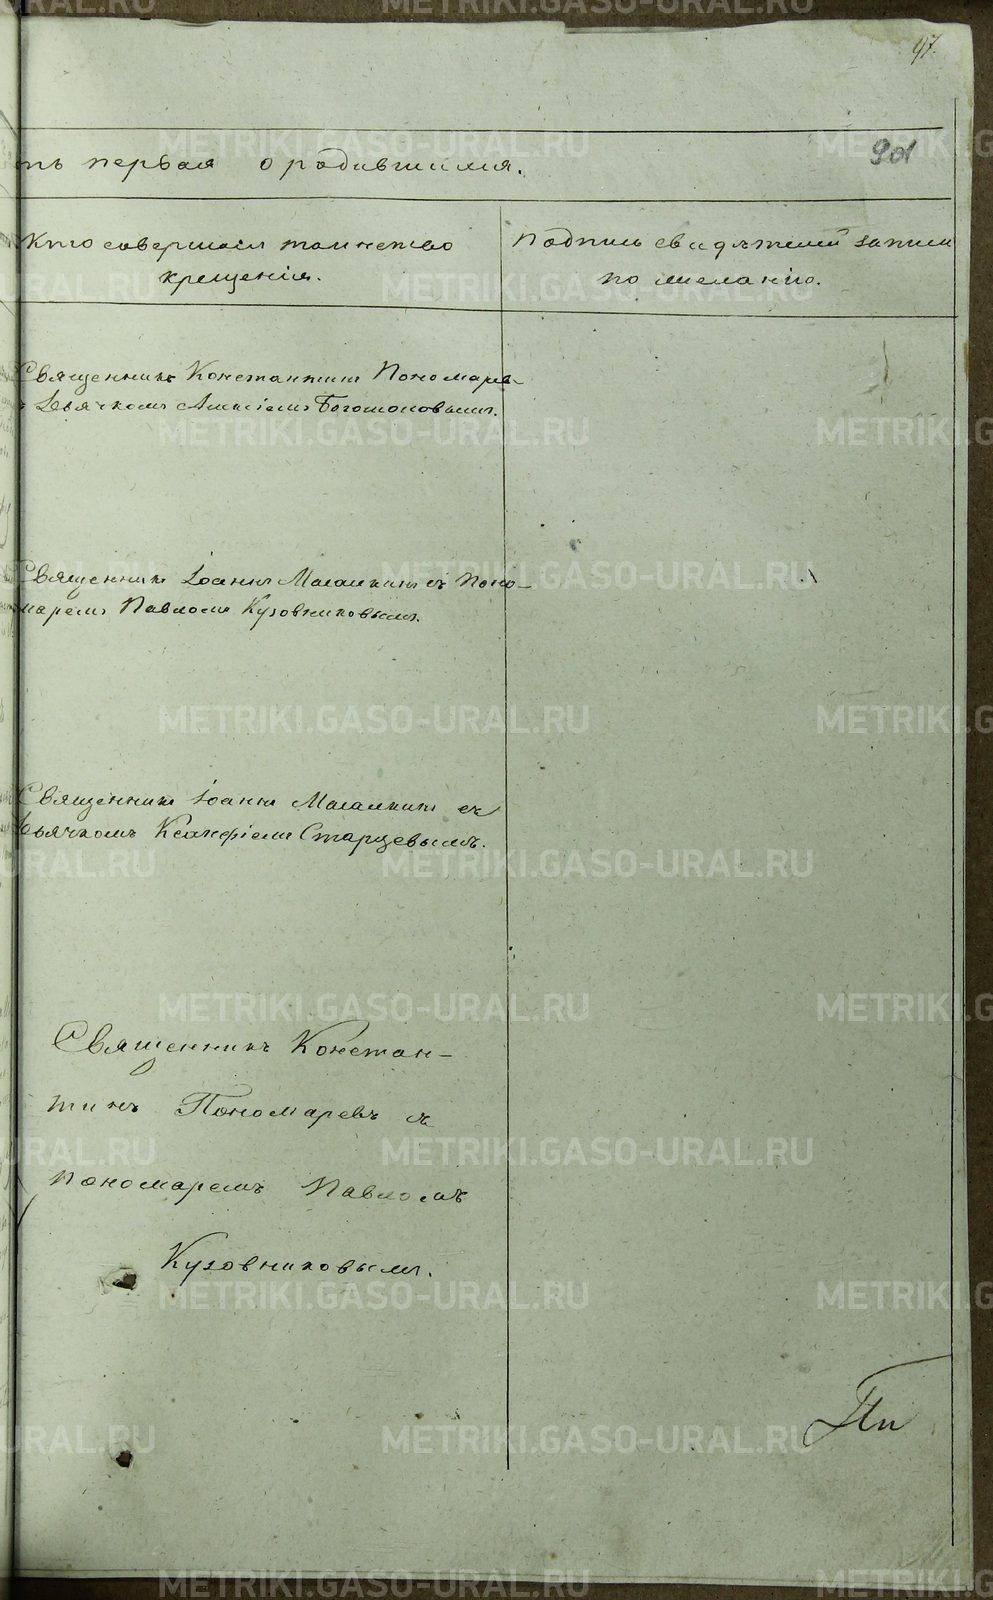 47.
901
ть первая о родившихся.
Кто совершалъ таинство
крещенія.
Подпись свидѣтелей записи
по желанію.
Священникъ Константинъ Пономаре-
Дьячкомъ Алексіемъ Богомоловымъ.
Священникъ Іоаннъ съ Поно-
маремъ Павломъ Кузовниковымъ.
Священникъ Іоаннъ съ
Дьячкомъ Ксанфіемъ Старцевымъ.
Священникъ Констан-
тинъ Пономаревъ съ
пономаремъ Павломъ
Кузовниковымъ.
METRIKI.GASO-URAL.RU